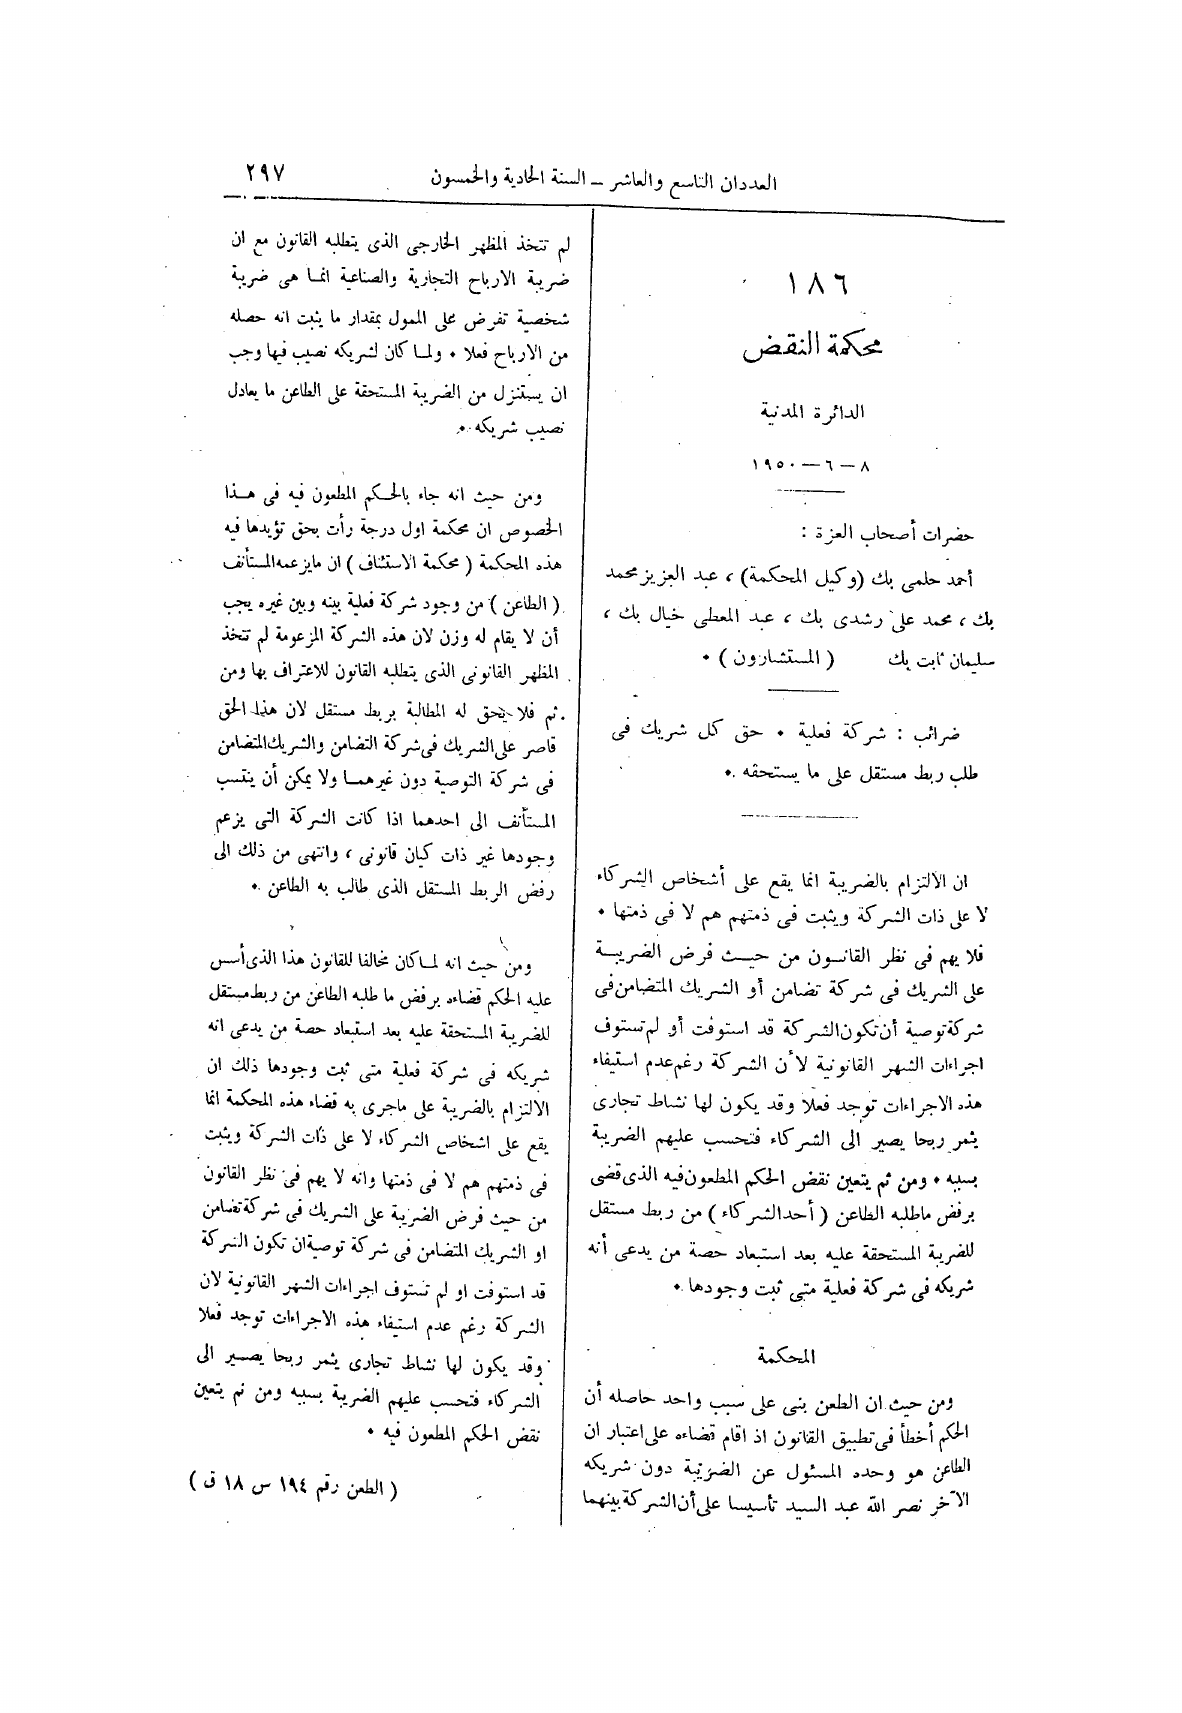 العددان التاسع والعاشر — السنة الحادية والخمسون
٢٩٧
١٨٦
محكمة النقض
الدائرة المدنية
٨ — ٦ — ١٩٥٠
حضرات أصحاب العزة :
أحمد حلمى بك (وكيل المحكمة) ، عبد العزيز محمد
بك ، محمد على رشدى بك ، عبد المعطى خيال بك ،
سليمان ثابت بك ( المستشارون ) •
ضرائب : شركة فعلية • حق كل شريك فى
طلب ربط مستقل على ما يستحقه •
ان الالتزام بالضريبة انما يقع على أشخاص الشركاء
لا على ذات الشركة ويثبت فى ذمتهم هم لا فى ذمتها •
فلا يهم فى نظر القانون من حيث فرض الضريبة
على الشريك فى شركة تضامن أو الشريك المتضامن فى
شركة توصية أن تكون الشركة قد استوفت أو لم تستوف
اجراءات الشهر القانونية لأن الشركة رغم عدم استيفاء
هذه الاجراءات توجد فعلا وقد يكون لها نشاط تجارى
يثمر ربحا يصير الى الشركاء فتحسب عليهم الضريبة
بسببه • ومن ثم يتعين نقض الحكم المطعون فيه الذى قضى
برفض ماطلبه الطاعن ( أحد الشركاء ) من ربط مستقل
للضريبة المستحقة عليه بعد استبعاد حصة من يدعى أنه
شريكه فى شركة فعلية متى ثبت وجودها •
المحكمة
ومن حيث ان الطعن بنى على سبب واحد حاصله أن
الحكم أخطأ فى تطبيق القانون اذ اقام قضاءه على اعتبار ان
الطاعن هو وحده المسئول عن الضريبة دون شريكه
الآخر نصر الله عبد السيد تأسيسا على أن الشركة بينهما
لم تتخذ المظهر الخارجى الذى يتطلبه القانون مع ان
ضريبة الارباح التجارية والصناعية انما هى ضريبة
شخصية تفرض على الممول بمقدار ما يثبت انه حصله
من الارباح فعلا • ولما كان لشريكه نصيب فيها وجب
ان يستنزل من الضريبة المستحقة على الطاعن ما يعادل
نصيب شريكه •
ومن حيث انه جاء بالحكم المطعون فيه فى هذا
الخصوص ان محكمة اول درجة رأت بحق تؤيدها فيه
هذه المحكمة ( محكمة الاستئناف ) ان مايزعمه المستأنف
( الطاعن ) من وجود شركة فعلية بينه وبين غيره يجب
أن لا يقام له وزن لان هذه الشركة المزعومة لم تتخذ
المظهر القانونى الذى يتطلبه القانون للاعتراف بها ومن
ثم فلا يحق له المطالبة بربط مستقل لان هذا الحق
قاصر على الشريك فى شركة التضامن والشريك المتضامن
فى شركة التوصية دون غيرهما ولا يمكن أن ينتسب
المستأنف الى احدهما اذا كانت الشركة التى يزعم
وجودها غير ذات كيان قانونى ، وانتهى من ذلك الى
رفض الربط المستقل الذى طالب به الطاعن •
ومن حيث انه لما كان مخالفا للقانون هذا الذى أسس
عليه الحكم قضاءه برفض ما طلبه الطاعن من ربط مستقل
للضريبة المستحقة عليه بعد استبعاد حصة من يدعى انه
شريكه فى شركة فعلية متى ثبت وجودها ذلك ان
الالتزام بالضريبة على ماجرى به قضاء هذه المحكمة انما
يقع على اشخاص الشركاء لا على ذات الشركة ويثبت
فى ذمتهم هم لا فى ذمتها وانه لا يهم فى نظر القانون
من حيث فرض الضريبة على الشريك فى شركة تضامن
او الشريك المتضامن فى شركة توصية ان تكون الشركة
قد استوفت او لم تستوف اجراءات الشهر القانونية لان
الشركة رغم عدم استيفاء هذه الاجراءات توجد فعلا
وقد يكون لها نشاط تجارى يثمر ربحا يصير الى
الشركاء فتحسب عليهم الضريبة بسببه ومن ثم يتعين
نقض الحكم المطعون فيه •
( الطعن رقم ١٩٤ س ١٨ ق )